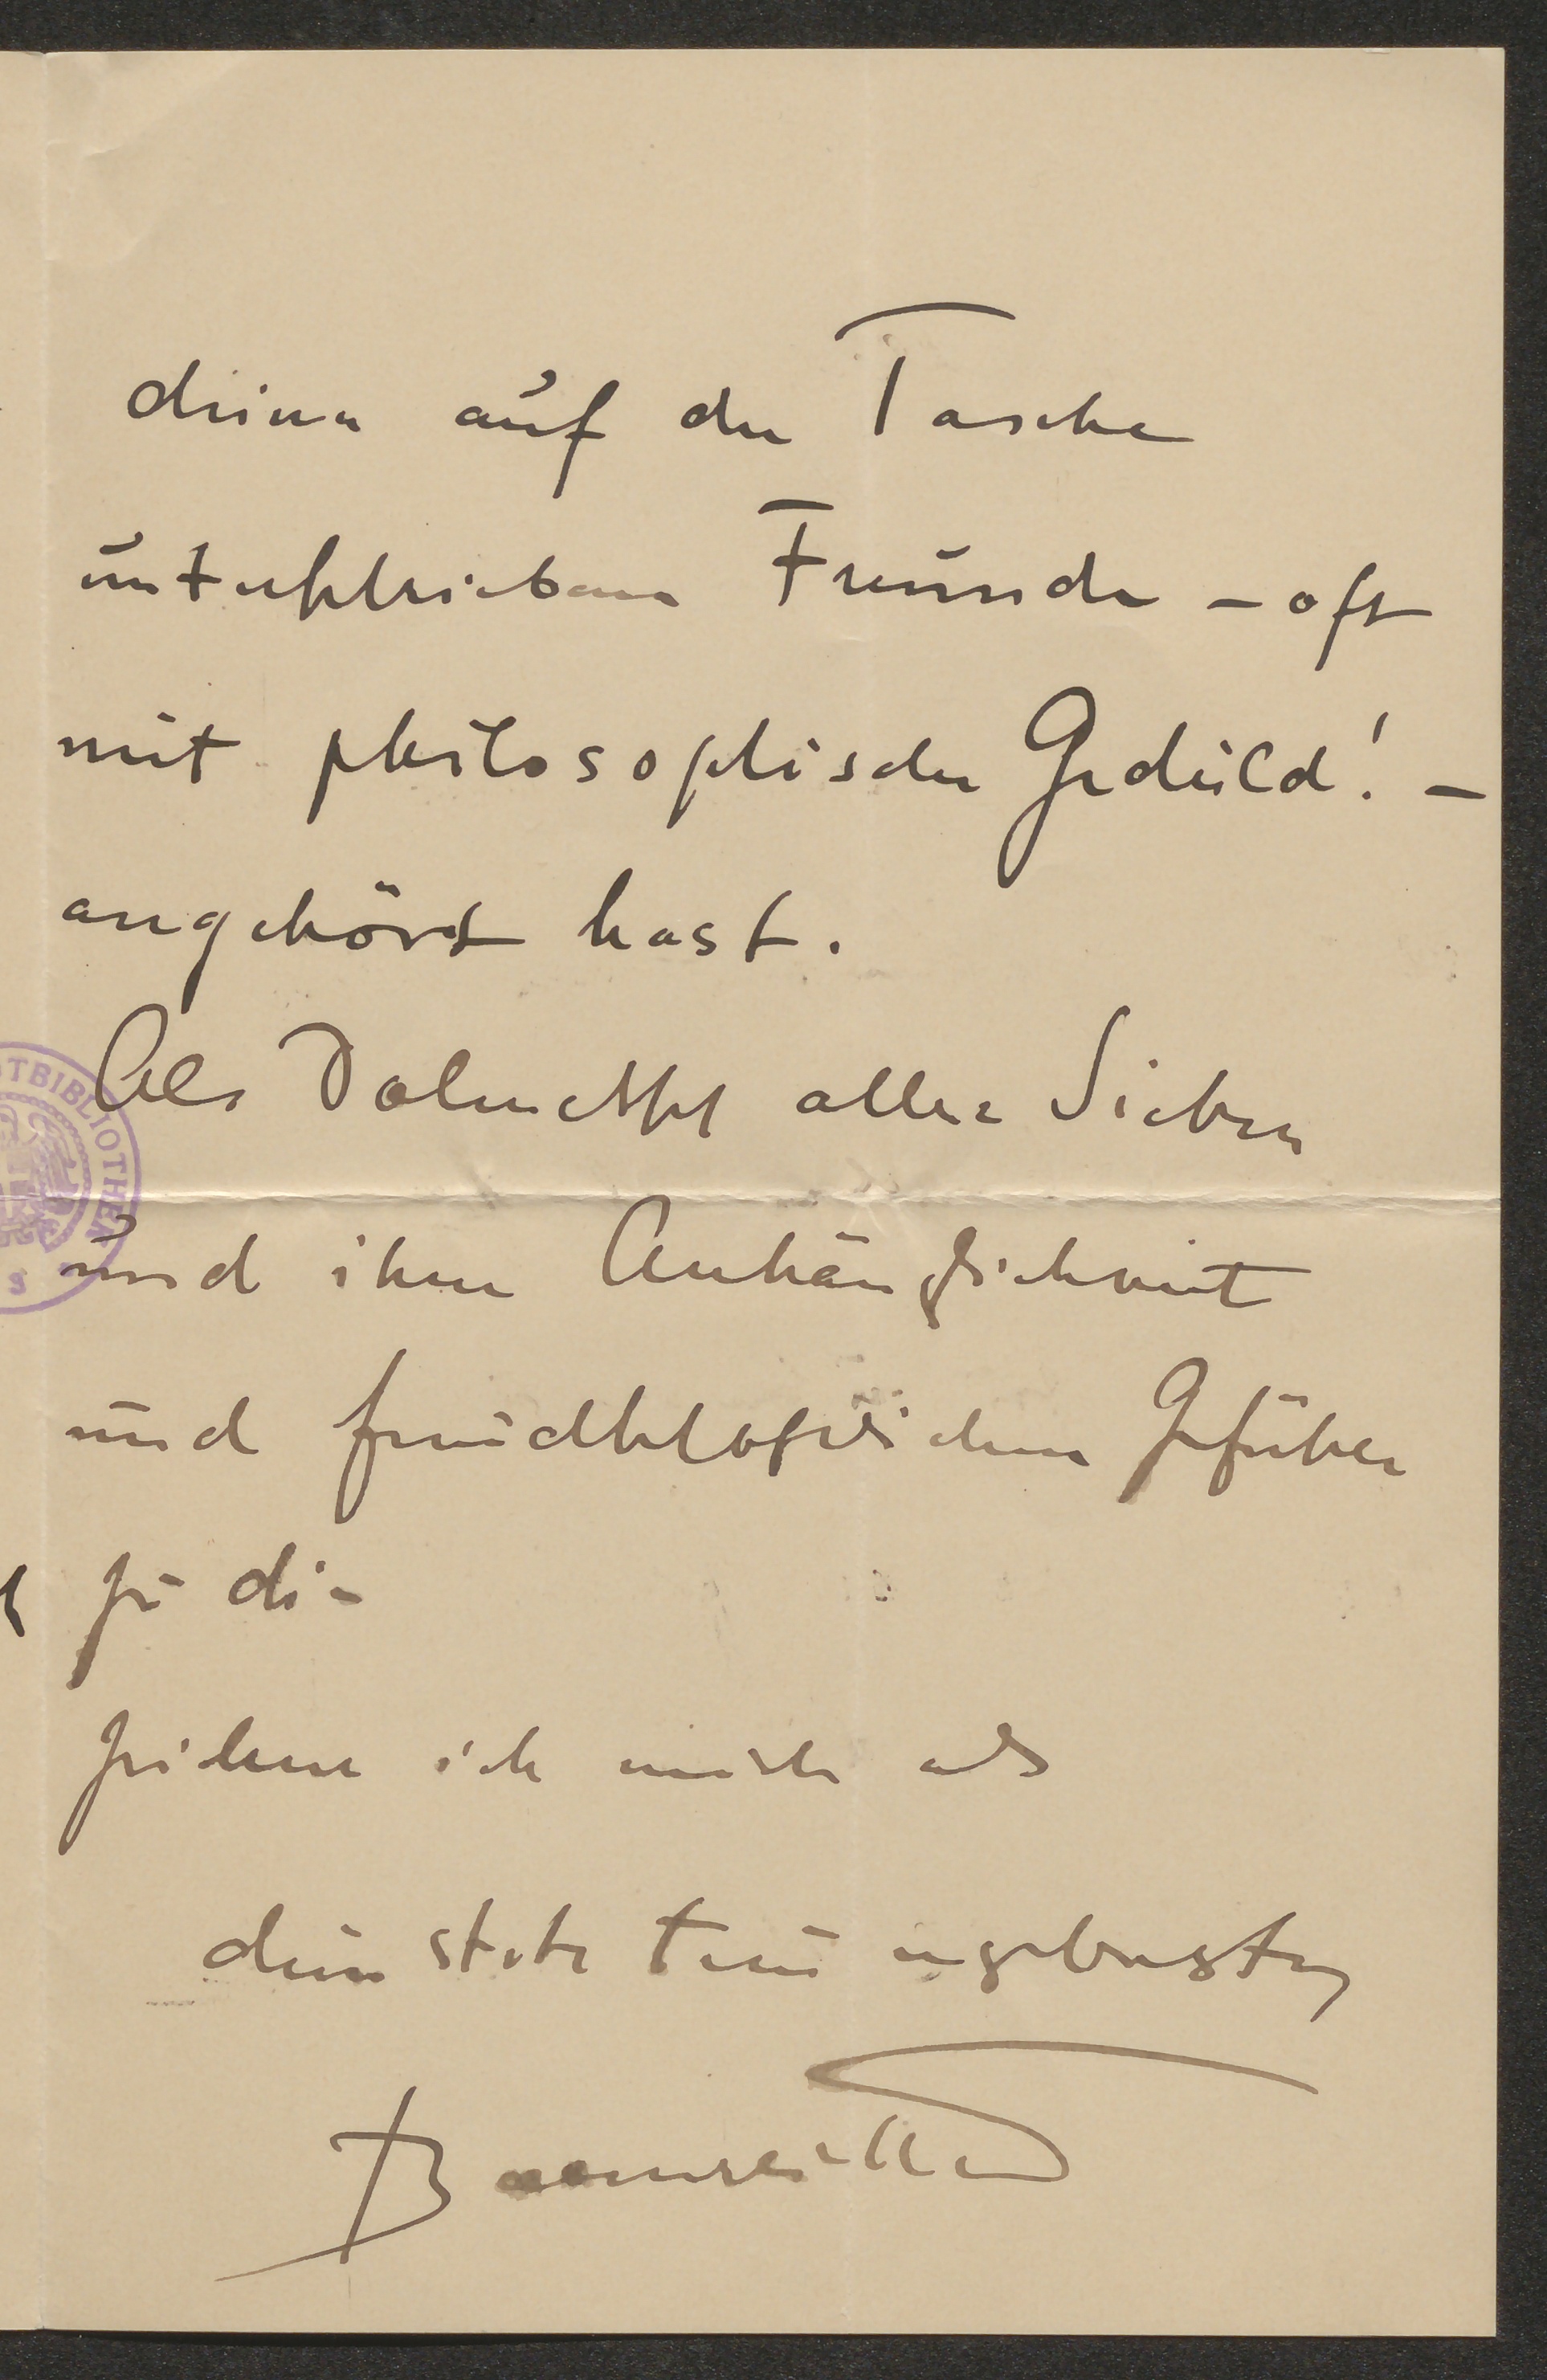 deiner auf der Tasche
unterschriebenen Freunde – oft
mit philosophischer Geduld! –
angehört hast.
Als Dolmetsch aller Sieben
und ihrer Anhänglichkeit
und freundschaftlichen Gefühle
für dich
zeichne ich mich als
dein stets treu ergebenster